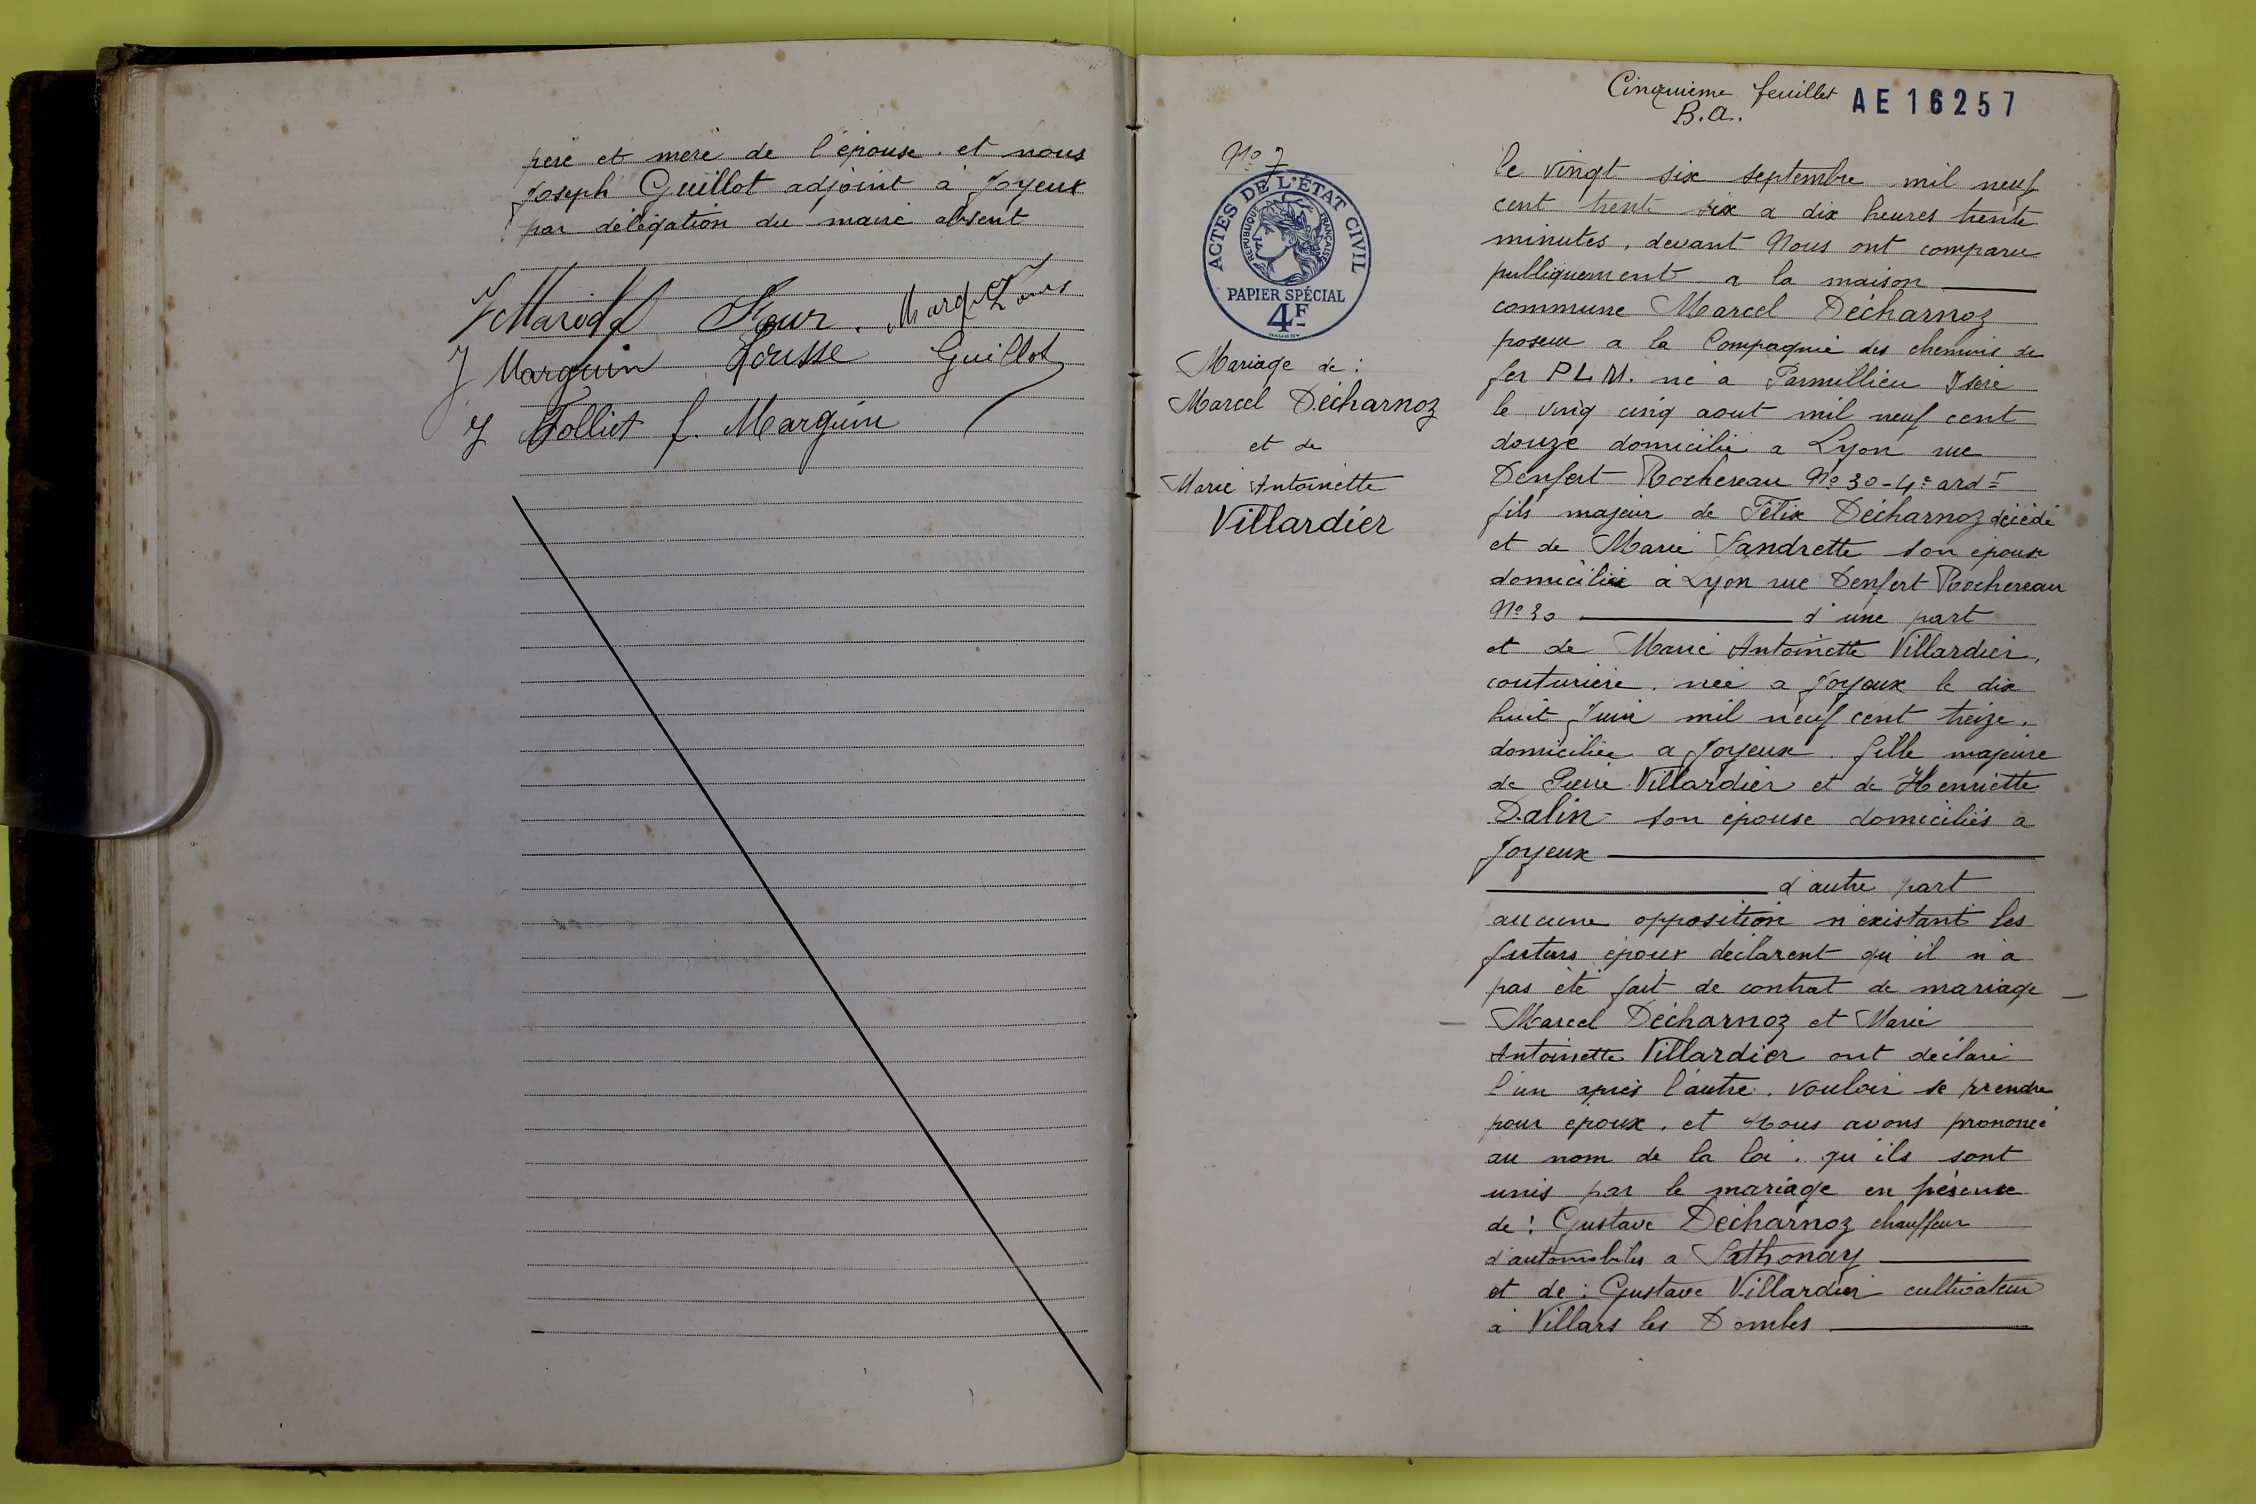 père et mère de l'épouse. et nous
Joseph Guillot adjoint à Joyeux
par délégation du maire absent
Marguin Guillot
J Folliet f. Marguin
Cinquième feuillet AE 16257
B.A.
No 7
ACTES DE L'ÉTAT CIVIL
RÉPUBLIQUE FRANÇAISE
PAPIER SPÉCIAL
4F
Mariage de :
Marcel Décharnoz
et de
Marie Antoinette
Villardier
le vingt six septembre mil neuf
cent trente six a dix heures trente
minutes, devant Nous ont comparu
publiquement a la maison
commune Marcel Décharnoz
poseur a la Compagnie des chemins de
fer P.L.M. né à Parmillieu Isère
le vinq cinq aout mil neuf cent
douze domicilié a Lyon rue
Denfert Rochereau No 30 - 4e ardt
fils majeur de Félix Décharnoz décédé
et de Marie Vandrette son épouse
domiciliée à Lyon rue Denfert Rochereau
No 30 d'une part
et de Marie Antoinette Villardier,
couturière. née a Joyeux le dix
huit Juin mil neuf cent treize.
domiciliée a Joyeux. fille majeure
de Pierre Villardier et de Henriette
Dalin son épouse domiciliés a
Joyeux
d'autre part
aucune opposition n'existant les
futurs époux déclarent qu'il n'a
pas été fait de contrat de mariage
Marcel Décharnoz et Marie
Antoinette Villardier ont déclaré
l'un après l'autre. vouloir se prendre
pour époux. et Nous avons prononcé
au nom de la loi. qu'ils sont
unis par le mariage en présence
de : Gustave Décharnoz chauffeur
d'automobiles a Sathonay
et de : Gustave Villardier cultivateur
à Villars les Dombes